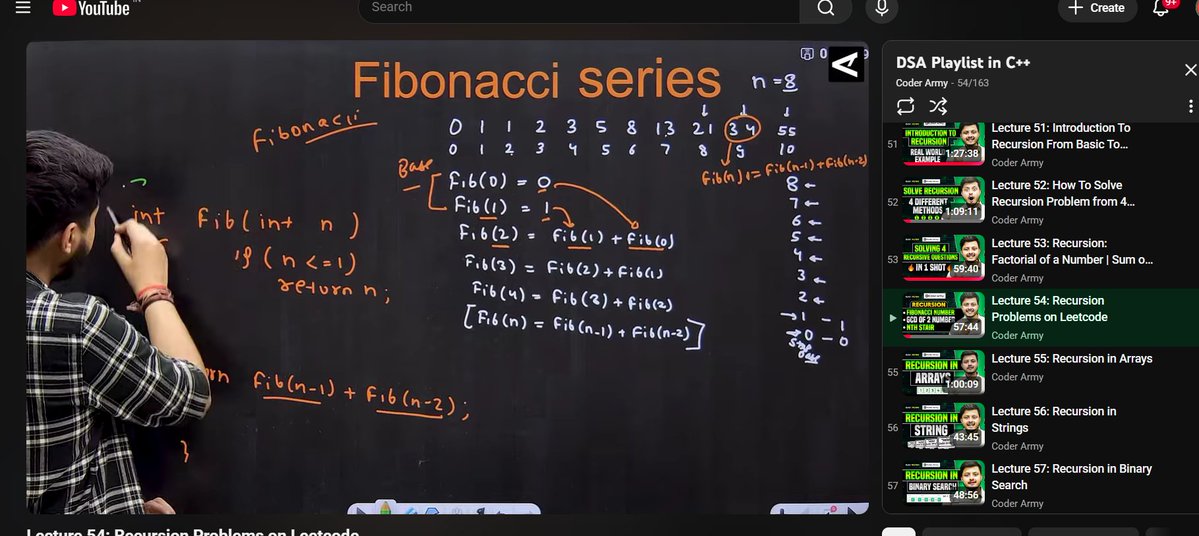 YouTube
IN
Search
Create
9+
Fibonacci series
n = 8
Fibonacii
0 1 1 2 3 5 8 13 21 34 55
0 1 2 3 4 5 6 7 8 9 10
Base
Fib(n) = Fib(n-1) + Fib(n-2)
Fib(0) = 0
Fib(1) = 1
Fib(2) = Fib(1) + Fib(0)
Fib(3) = Fib(2) + Fib(1)
Fib(4) = Fib(3) + Fib(2)
[Fib(n) = Fib(n-1) + Fib(n-2)]
8 ←
7 ←
6 ←
5 ←
4 ←
3 ←
2 ←
→ 1 - 1
→ 0 - 0
int Fib(int n)
if (n <= 1)
return n;
Fib(n-1) + Fib(n-2);
}
Lecture 54: Recursion Problems on Leetcode
DSA Playlist in C++
Coder Army - 54/163
51
INTRODUCTION TO
RECURSION
REAL WORL
EXAMPLE
1:27:38
Lecture 51: Introduction To
Recursion From Basic To...
Coder Army
52
SOLVE RECURSION
4 DIFFERENT
METHODS
1:09:11
Lecture 52: How To Solve
Recursion Problem from 4...
Coder Army
53
SOLVING 4
RECURSIVE QUESTIONS
IN 1 SHOT
59:40
Lecture 53: Recursion:
Factorial of a Number | Sum o...
Coder Army
RECURSION
FIBONACCI NUMBER
GCD OF 2 NUMBER
NTH STAIR
57:44
Lecture 54: Recursion
Problems on Leetcode
Coder Army
55
RECURSION IN
ARRAYS
1:00:09
Lecture 55: Recursion in Arrays
Coder Army
56
RECURSION IN
STRING
43:45
Lecture 56: Recursion in
Strings
Coder Army
57
RECURSION IN
BINARY SEARCH
48:56
Lecture 57: Recursion in Binary
Search
Coder Army